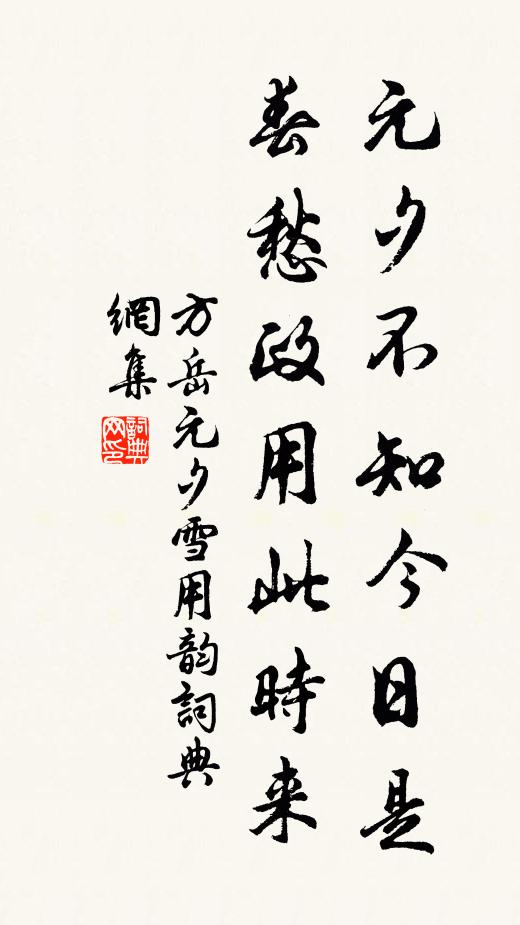 元夕不知今日是
春愁政用此時来
方岳元夕雪用韵詞典
網集
詞典網印